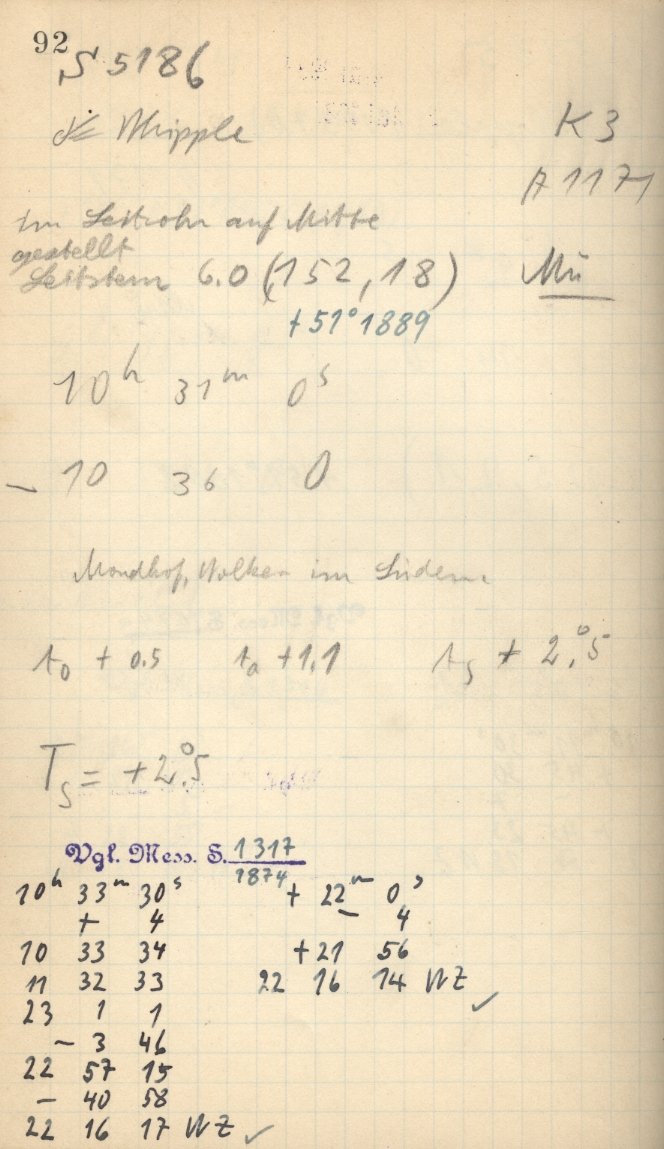 92
S 5186
☄ Whipple
K 3
A 1171
im Leitrohr auf Mitte
gestellt
Leitstern 6.0 (152, 18)
Mü
+51° 1889
10ʰ 31ᵐ 0ˢ
– 10 36 0
Mondhof, Wolken im Süden.
t₀ + 0.5 tₐ + 1,1 tₛ + 2,°5
Tₛ = +2°.5
Vgl. Mess. S. 1317
1874
10ʰ 33ᵐ 30ˢ + 22ᵐ 0ˢ
+ 4 – 4
10 33 34 +21 56
11 32 33 22 16 14 WZ ✓
23 1 1
– 3 46
22 57 15
– 40 58
22 16 17 WZ ✓